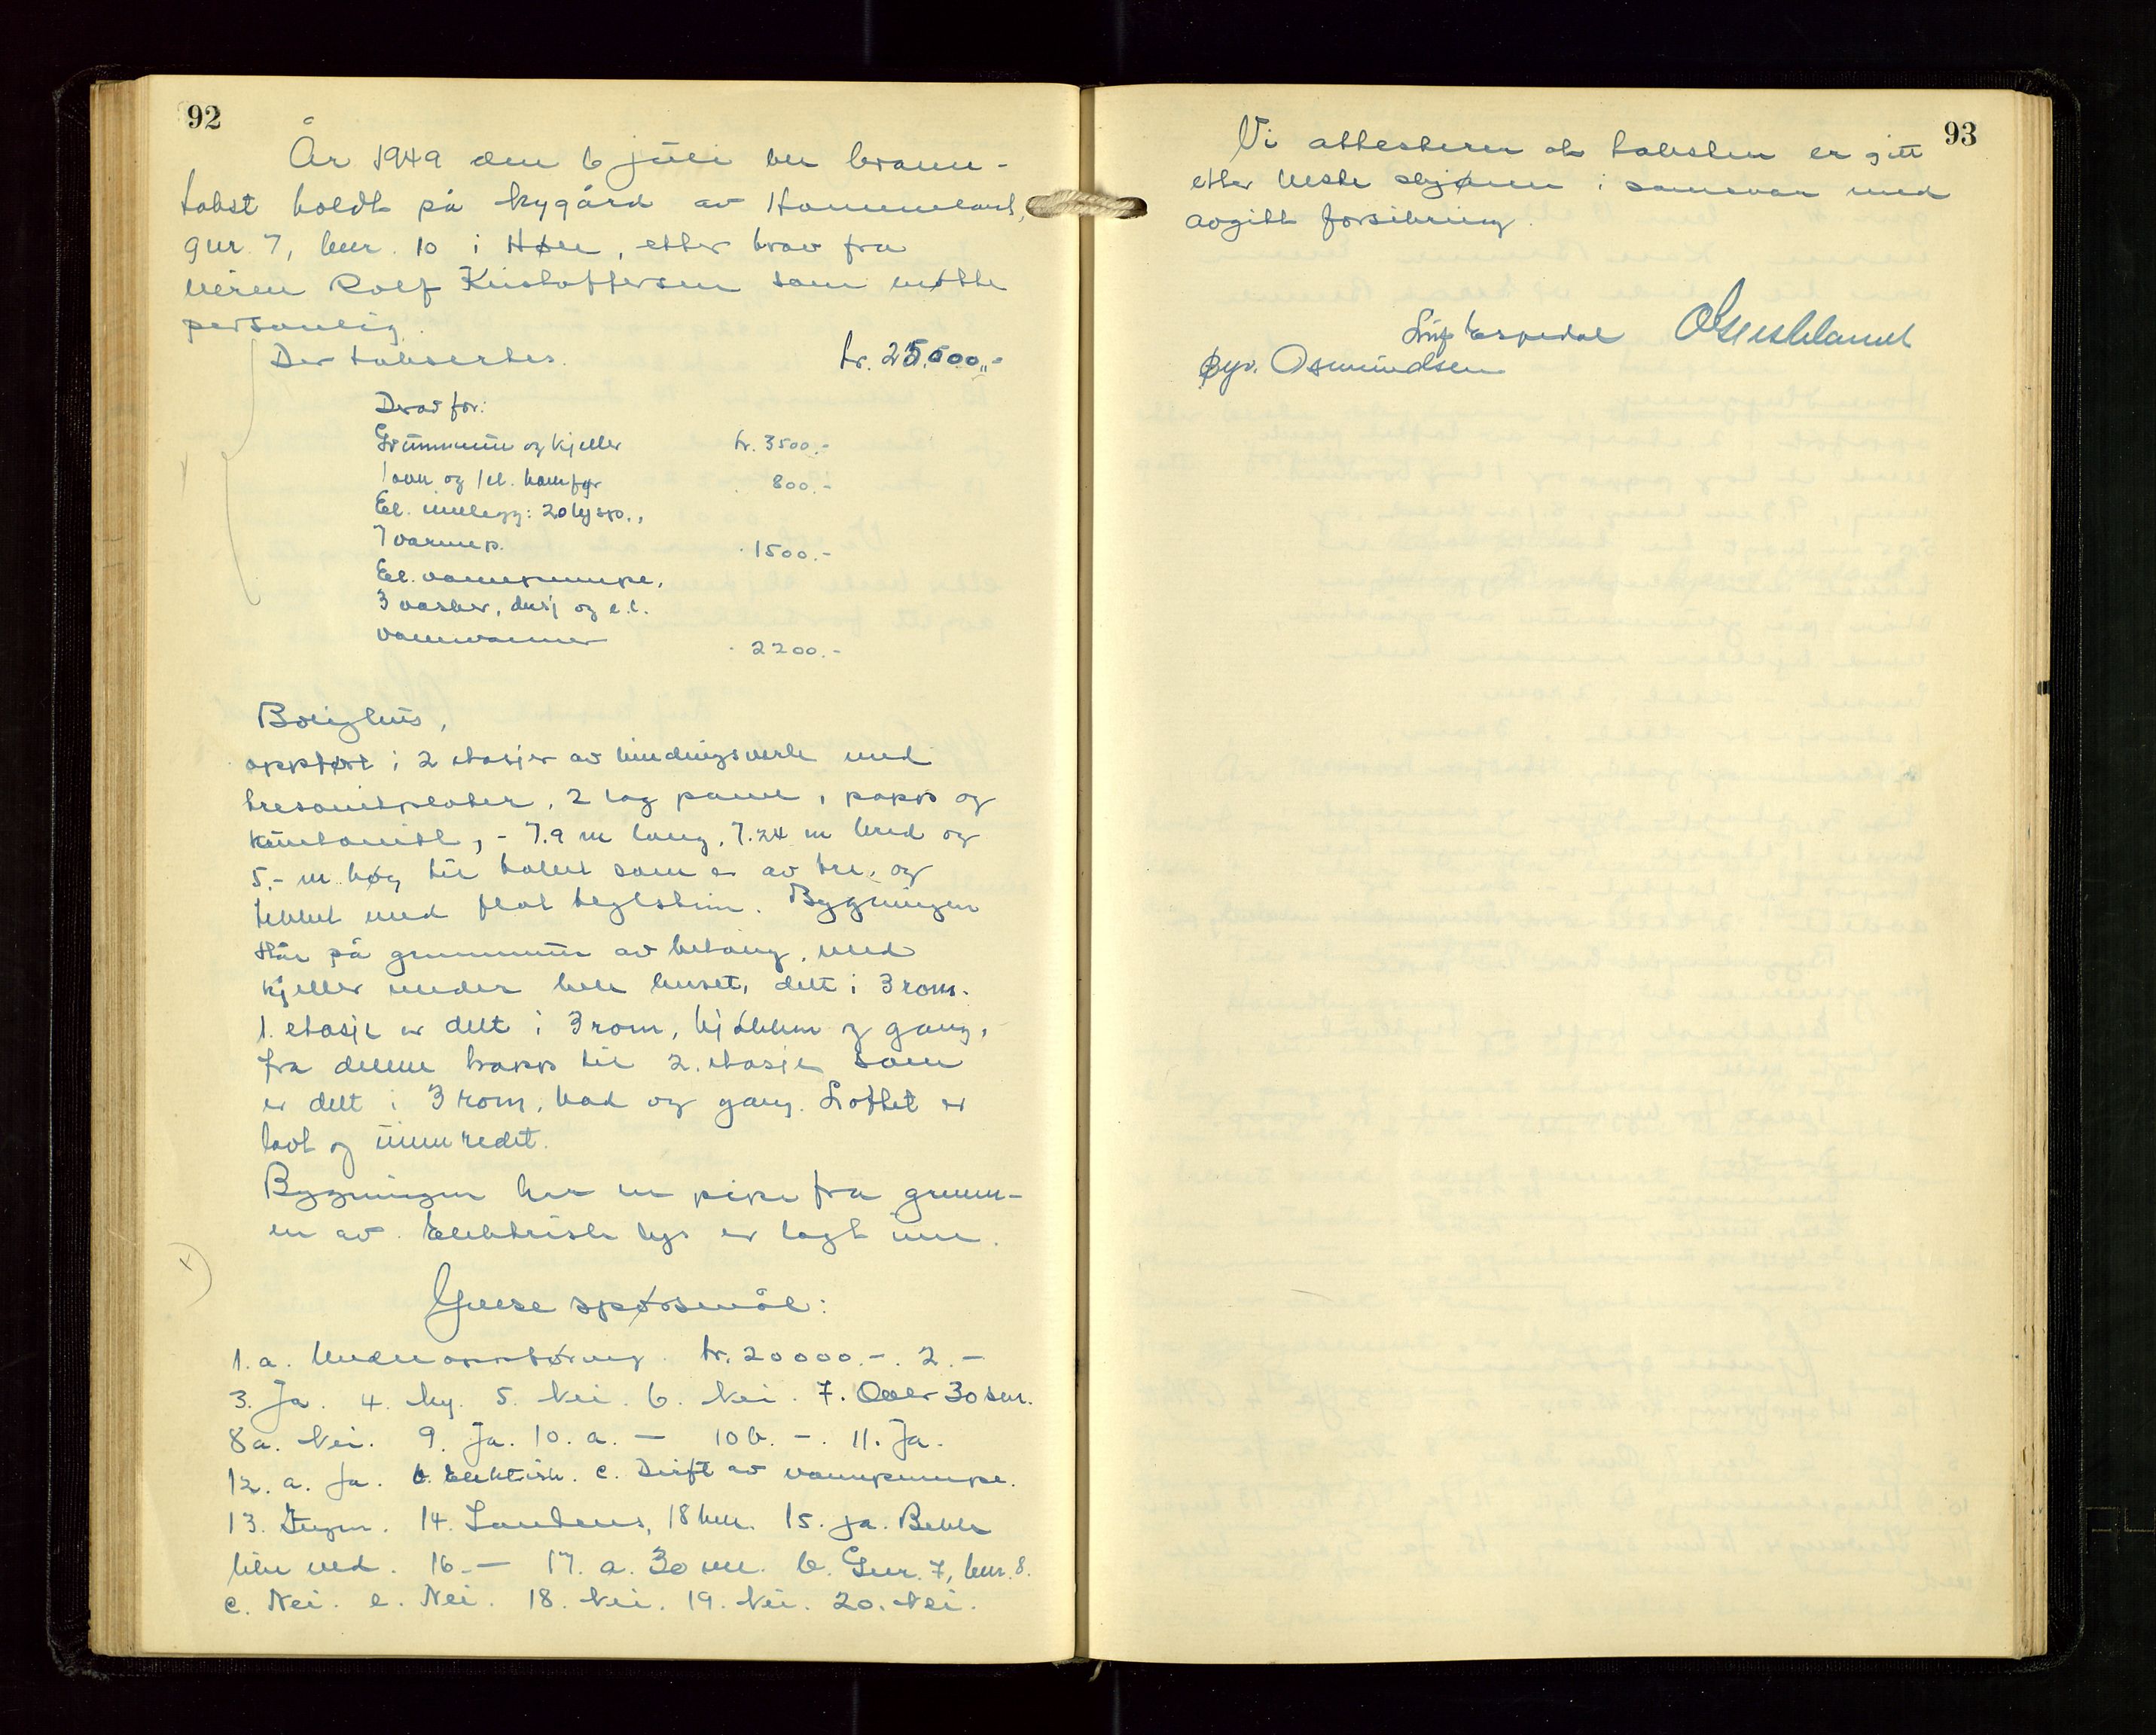 92
År 1949 den 6 juli ble brann-
takst holdt på bygård av Hommeland,
gnr. 7, bnr. 10 i Høle, etter krav fra
eieren Rolf Kristoffersen som møtte
personlig.
Der takseres. kr. 25.500,-
Derav for:
Grunnmur og kjeller kr. 3500.-
1 ovn og 1 el. komfyr 800.-
El. innlegg: 20 lysp.,
7 varmep. 1500.-
El. vannpumpe,
3 vasker, dusj og el.
vannvarmer 2200.-
Bolighus,
oppført i 2 etasjer av bindingsverk med
tresonitplater, 2 lag panel, papp og
- 7.9 m lang, 7.24 m bred og
5.- m høg til taket som er av tre, og
tekket med flat teglstein. Bygningen
står på grunnmur av betong, med
kjeller under hele huset, delt i 3 rom.
1. etasje er delt i 3 rom, kjøkken og gang,
fra denne trapp til 2. etasje som
er delt i 3 rom, bad og gang. Loftet er
lavt og uinnredet.
Bygningen har en pipe fra grunn-
en av. Elektrisk lys er lagt inn.
Ymse spørsmål:
1.a. Under oppføring. kr. 20000.-. 2. -
3. Ja. 4. Ny. 5. Nei. 6. Nei. 7. Over 30 sm.
8a. Nei. 9. Ja. 10. a. - 10 b. -. 11. Ja.
12. a. Ja. b. Elektrisk. c. Drift av vannpumpe.
13. Ingen. 14. Sandnes, 18 km. 15. Ja. Bekk
like ved. 16. - 17. a. 30 m. b. Gnr. 7, bnr. 8.
c. Nei. e. Nei. 18. Nei. 19. Nei. 20. Nei.
93
Vi attesterer at taksten er gitt
etter beste skjønn i samsvar med
avgitt forsikring.
Espedal
Øyv. Osmundsen